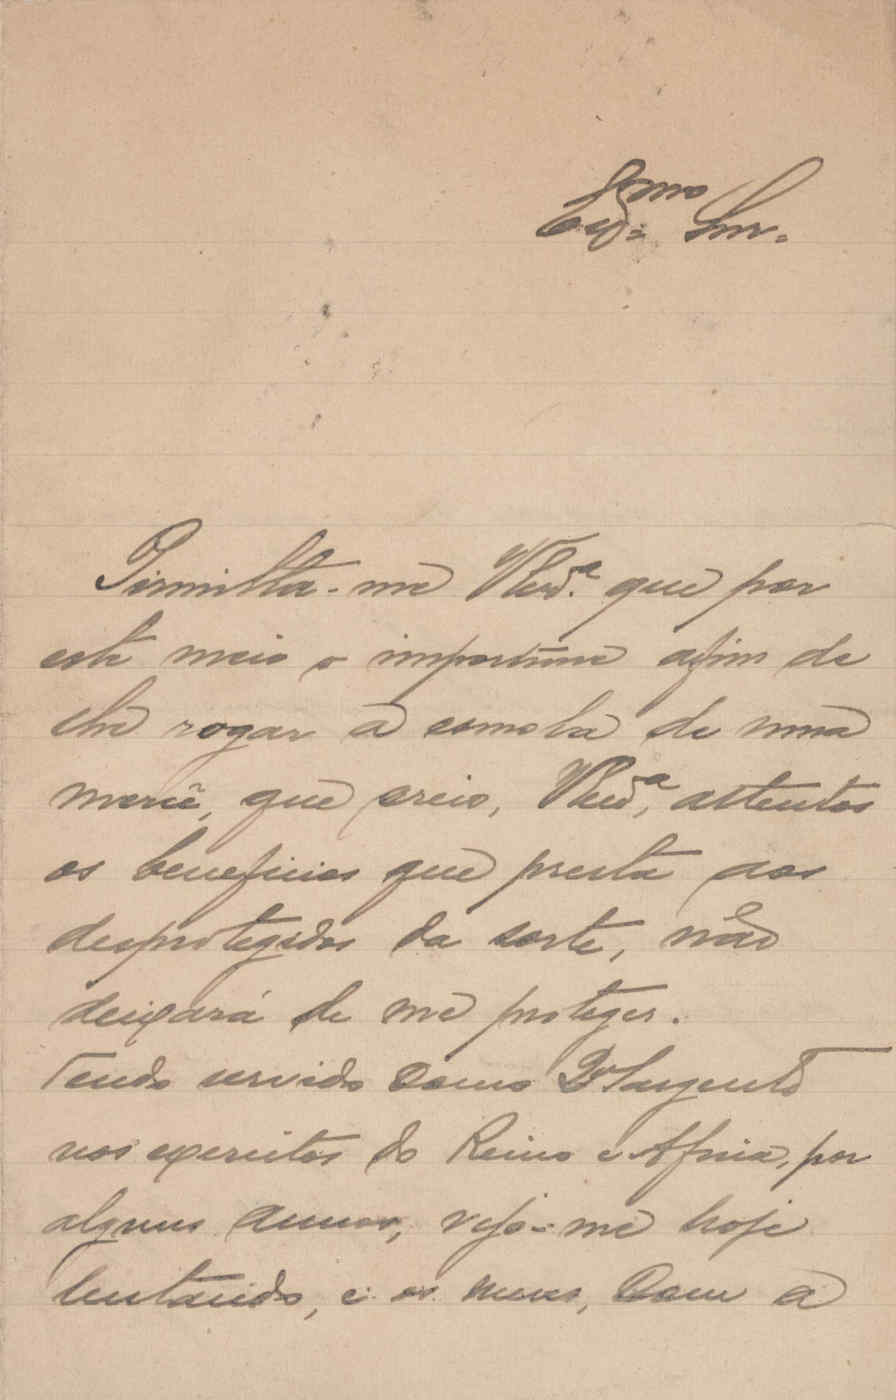 Exmo Snr.
Permitta-me V Exa. que por
este meio o importune afim de
lhe rogar a esmola de uma
mercê, que creio, V Exa, attentos
os beneficios que presta aos
desprotegidos da sorte, não
deixará de me proteger.
Tendo servido como 2º Sargento
nos exercitos do Reino e Africa, por
alguns annos, vejo-me hoje
luctando, e os meus, com a